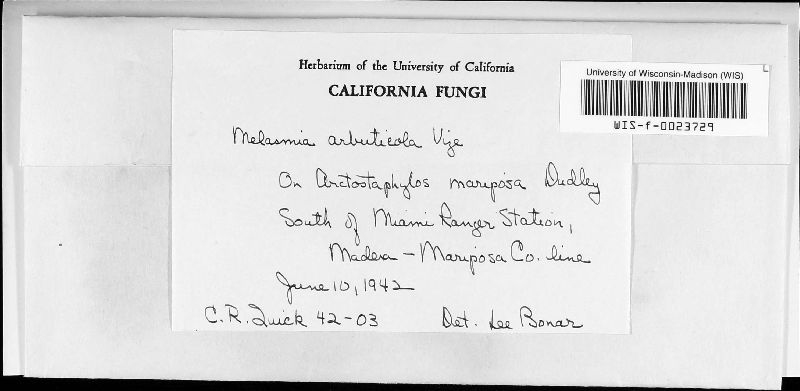 Herbarium of the University of California
CALIFORNIA FUNGI
University of Wisconsin-Madison (WIS)
WIS-f-0023729
Melasmia arbuticola Vize
On Arctostaphylos mariposa Dudley
South of Miami Ranger Station,
Madera - Mariposa Co. line
June 10, 1942
C. R. Quick 42-03 Det. Lee Bonar